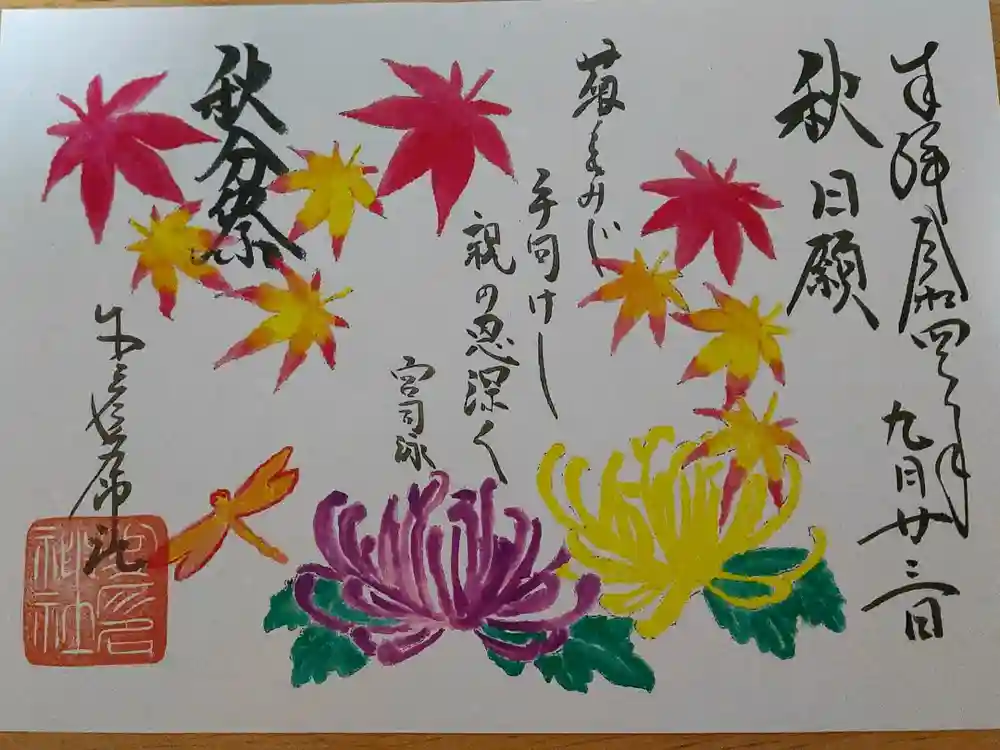 奉拝 令和四年 九月廿三日
秋日願
菊もみじ
手向けし
の恩深く
宮司詠
秋分祭
神社